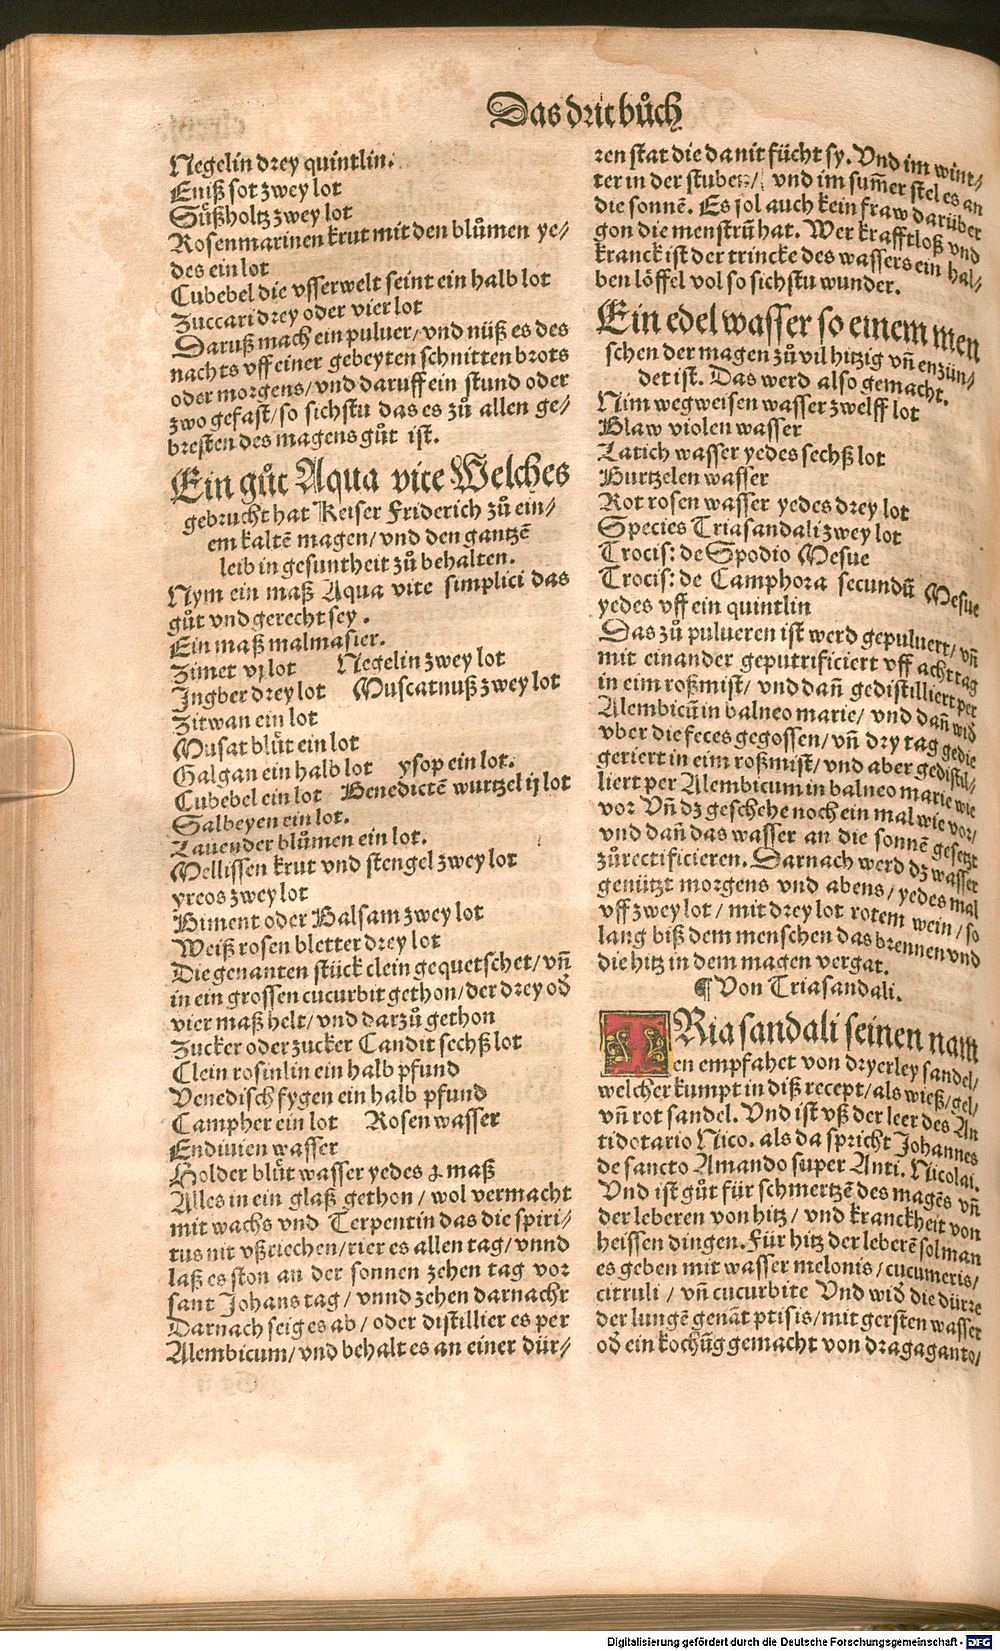 Das drit bůch
Negelin drey quintlin.
Eniß sot zwey lot
Sůßholtz zwey lot
Rosenmarinen krut mit den blůmen ye⸗
des ein lot
Cubebel die vsserwelt seint ein halb lot
Zuccari drey oder vier lot
Daruß mach ein puluer/ vnd nüß es des
nachts vff einer gebeyten schnitten brots
oder morgens/ vnd daruff ein stund oder
zwo gefast/ so sichstu das es zů allen ge⸗
bresten des magens gůt ist.
Ein gůt Aqua vite Welches
gebrucht hat Keiser Friderich zů ein⸗
em kaltē magen/ vnd den gantzē
leib in gesuntheit zů behalten.
Nym ein maß Aqua vite simplici das
gůt vnd gerecht sey.
Ein maß malmasier.
Zimet vj lot Negelin zwey lot
Ingber drey lot Muscatnuß zwey lot
Zitwan ein lot
Musat blůt ein lot
Galgan ein halb lot ysop ein lot.
Cubebel ein lot Benedictē wurtzel ij lot
Salbeyen ein lot.
Lauender blůmen ein lot.
Mellissen krut vnd stengel zwey lot
yreos zwey lot
Biment oder Balsam zwey lot
Weiß rosen bletter drey lot
Die genanten stück clein gequetschet/ vñ
in ein grossen cucurbit gethon/ der drey od̄
vier maß helt/ vnd darzů gethon
Zucker oder zucker Candit sechß lot
Clein rosinlin ein halb pfund
Venedisch fygen ein halb pfund
Campher ein lot Rosen wasser
Endiuien wasser
Holder blůt wasser yedes maß
Alles in ein glaß gethon/ wol vermacht
mit wachs vnd Terpentin das die spiri⸗
tus nit vßriechen/ rier es allen tag/ vnnd
laß es ston an der sonnen zehen tag vor
sant Johans tag/ vnnd zehen darnachr
Darnach seig es ab/ oder distillier es per
Alembicum/ vnd behalt es an einer dür⸗
ren stat die da nit fücht sy. Vnd im wint⸗
ter in der stuben/ vnd im sum̄er stel es an
die sonnē. Es sol auch kein fraw darüber
gon die menstrū hat. Wer krafftloß vnd
kranck ist der trincke des wassers ein hal⸗
ben löffel vol so sichstu wunder.
Ein edel wasser so einem men
schen der magen zů vil hitzig vñ enzün⸗
det ist. Das werd also gemacht.
Nim wegweisen wasser zwelff lot
Blaw violen wasser
Latich wasser yedes sechß lot
Burtzelen wasser
Rot rosen wasser yedes drey lot
Species Triasandali zwey lot
Trocis: de Spodio Mesue
Trocis: de Camphora secundū Mesue
yedes vff ein quintlin
Das zů pulueren ist werd gepuluert/ vñ
mit einander geputrificiert vff acht tag
in eim roßmist/ vnd dañ gedistilliert per
Alembicū in balneo marie/ vnd dañ wid
vber die feces gegossen/ vñ dry tag gedie
geriert in eim roßmist/ vnd aber gedistil⸗
liert per Alembicum in balneo marie wie
vor Vñ dz geschehe noch ein mal wie vor/
vnd dañ das wasser an die sonnē gesetzt
zů rectificieren. Darnach werd dz wasser
genützt morgens vnd abens/ yedes mal
vff zwey lot/ mit drey lot rotem wein/ so
lang biß dem menschen das brennen vnd
die hitz in dem magen vergat.
¶ Von Triasandali.
TRia sandali seinen nam
en empfahet von dryerley sandel/
welcher kumpt in diß recept/ als wieß/ gel/
vñ rot sandel. Vnd ist vß der leer des An
tidotario Nico. als da spricht Johannes
de sancto Amando super Anti. Nicolai.
Vnd ist gůt für schmertzē des magēs vñ
der leberen von hitz/ vnd kranckheit von
heissen dingen. Für hitz der leberē sol man
es geben mit wasser melonis/ cucumeris/
citruli/ vñ cucurbite Vnd wid̄ die dürre
der lungē genāt ptisis/ mit gersten wasser
od̄ ein kochūg gemacht von dragaganto/
Digitalisierung gefördert durch die Deutsche Forschungsgemeinschaft - DFG